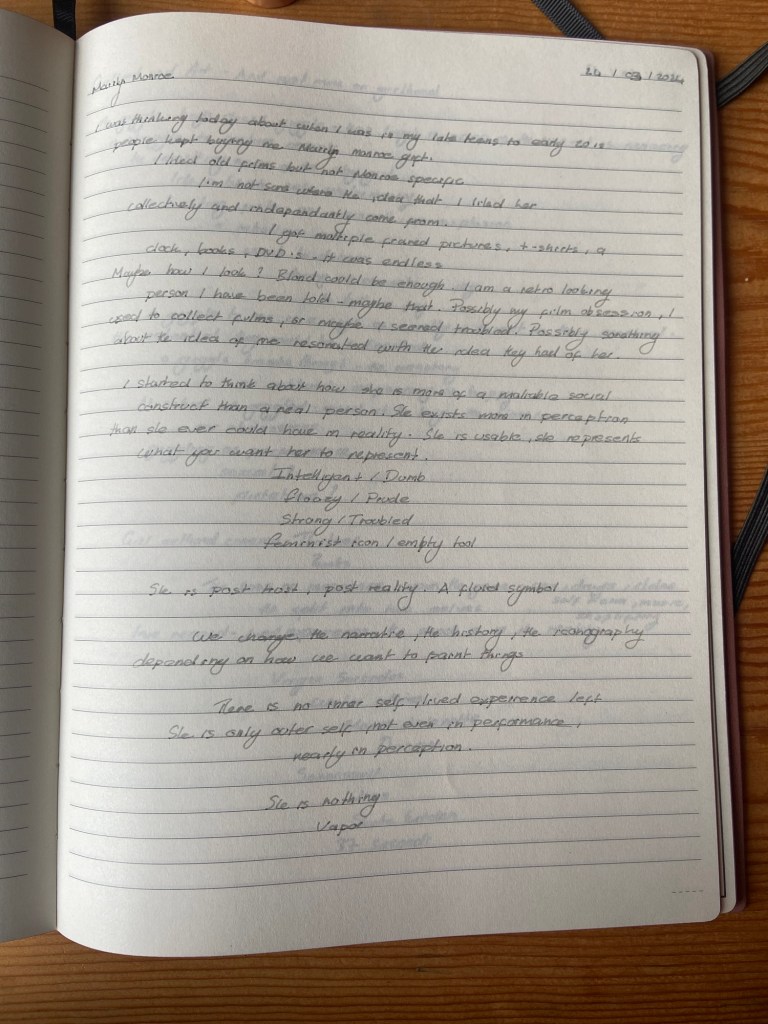 Marilyn Monroe 24 / 03 / 2024
I was thinking today about when I was in my late teens to early 20's
people kept buying me Marilyn Monroe gift.
I liked old films but not Monroe specific
I'm not sure where the idea that I liked her
collectively and independantly came from.
I got multiple framed pictures, t-shirts, a
clock, books, DVD's - it was endless
Maybe how I look? Blond could be enough. I am a retro looking
person I have been told - maybe that. Possibly my film obsession, I
used to collect films, or maybe I seemed troubled. Possibly something
about the idea of me resonated with the idea they had of her.
I started to think about how she is more of a maliable social
construct than a real person. She exists more in perception
than she ever could have in reality. She is usable, she represents
what you want her to represent.
Intelligent / Dumb
floozy / Prude
Strong / Troubled
feminist icon / empty tool
She is post trust, post reality. A fluid symbol
We change the narrative, the history, the iconography
depending on how we want to paint things
There is no inner self, lived experience left
She is only outer self, not even in performance,
nearly in perception.
She is nothing
Vapor